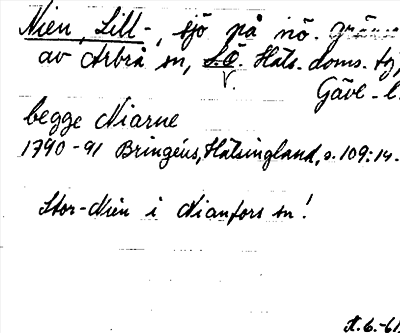 Nien, Lill-, sjö på nö. gräns
av Arbrå sn, S.Ö. Häls. doms. tg,
V.
Gävl-l.
begge Niarne
1790-91 Bringéus, Hälsingland, s. 109:14.
Stor-Nien i Nianfors sn!